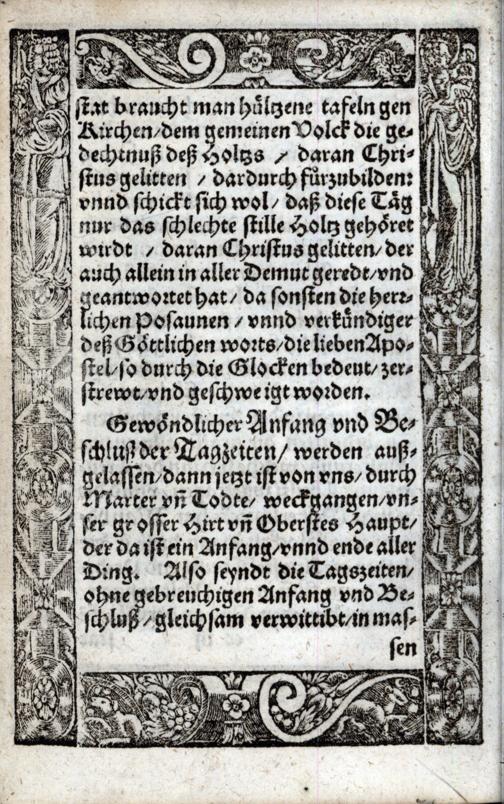 stat braucht man hültzene tafeln gen
Kirchen/dem gemeinen Volck die ge-
dechtnuß deß Holtzs / daran Chri-
stus gelitten / dardurch fürzubilden:
vnnd schickt sich wol/ daß diese Täg
nur das schlechte stille Holtz gehöret
wirdt / daran Christus gelitten/der
auch allein in aller Demut geredt/vnd
geantwortet hat/ da sonsten die herr-
lichen Posaunen / vnnd verkündiger
deß Göttlichen worts/die lieben Apo-
stel/so durch die Glocken bedeut/zer-
strewt/vnd geschweigt worden.
Gewöndlicher Anfang vnd Be-
schluß der Tagzeiten/ werden auß-
gelassen/dann jetzt ist von vns/ durch
Marter vñ Todte/ weckgangen/vn-
ser grosser Hirt vñ Oberstes Haupt/
der da ist ein Anfang/vnnd ende aller
Ding. Also seyndt die Tagszeiten/
ohne gebreuchigen Anfang vnd Be-
schluß/gleichsam verwittibt/in mas-
sen